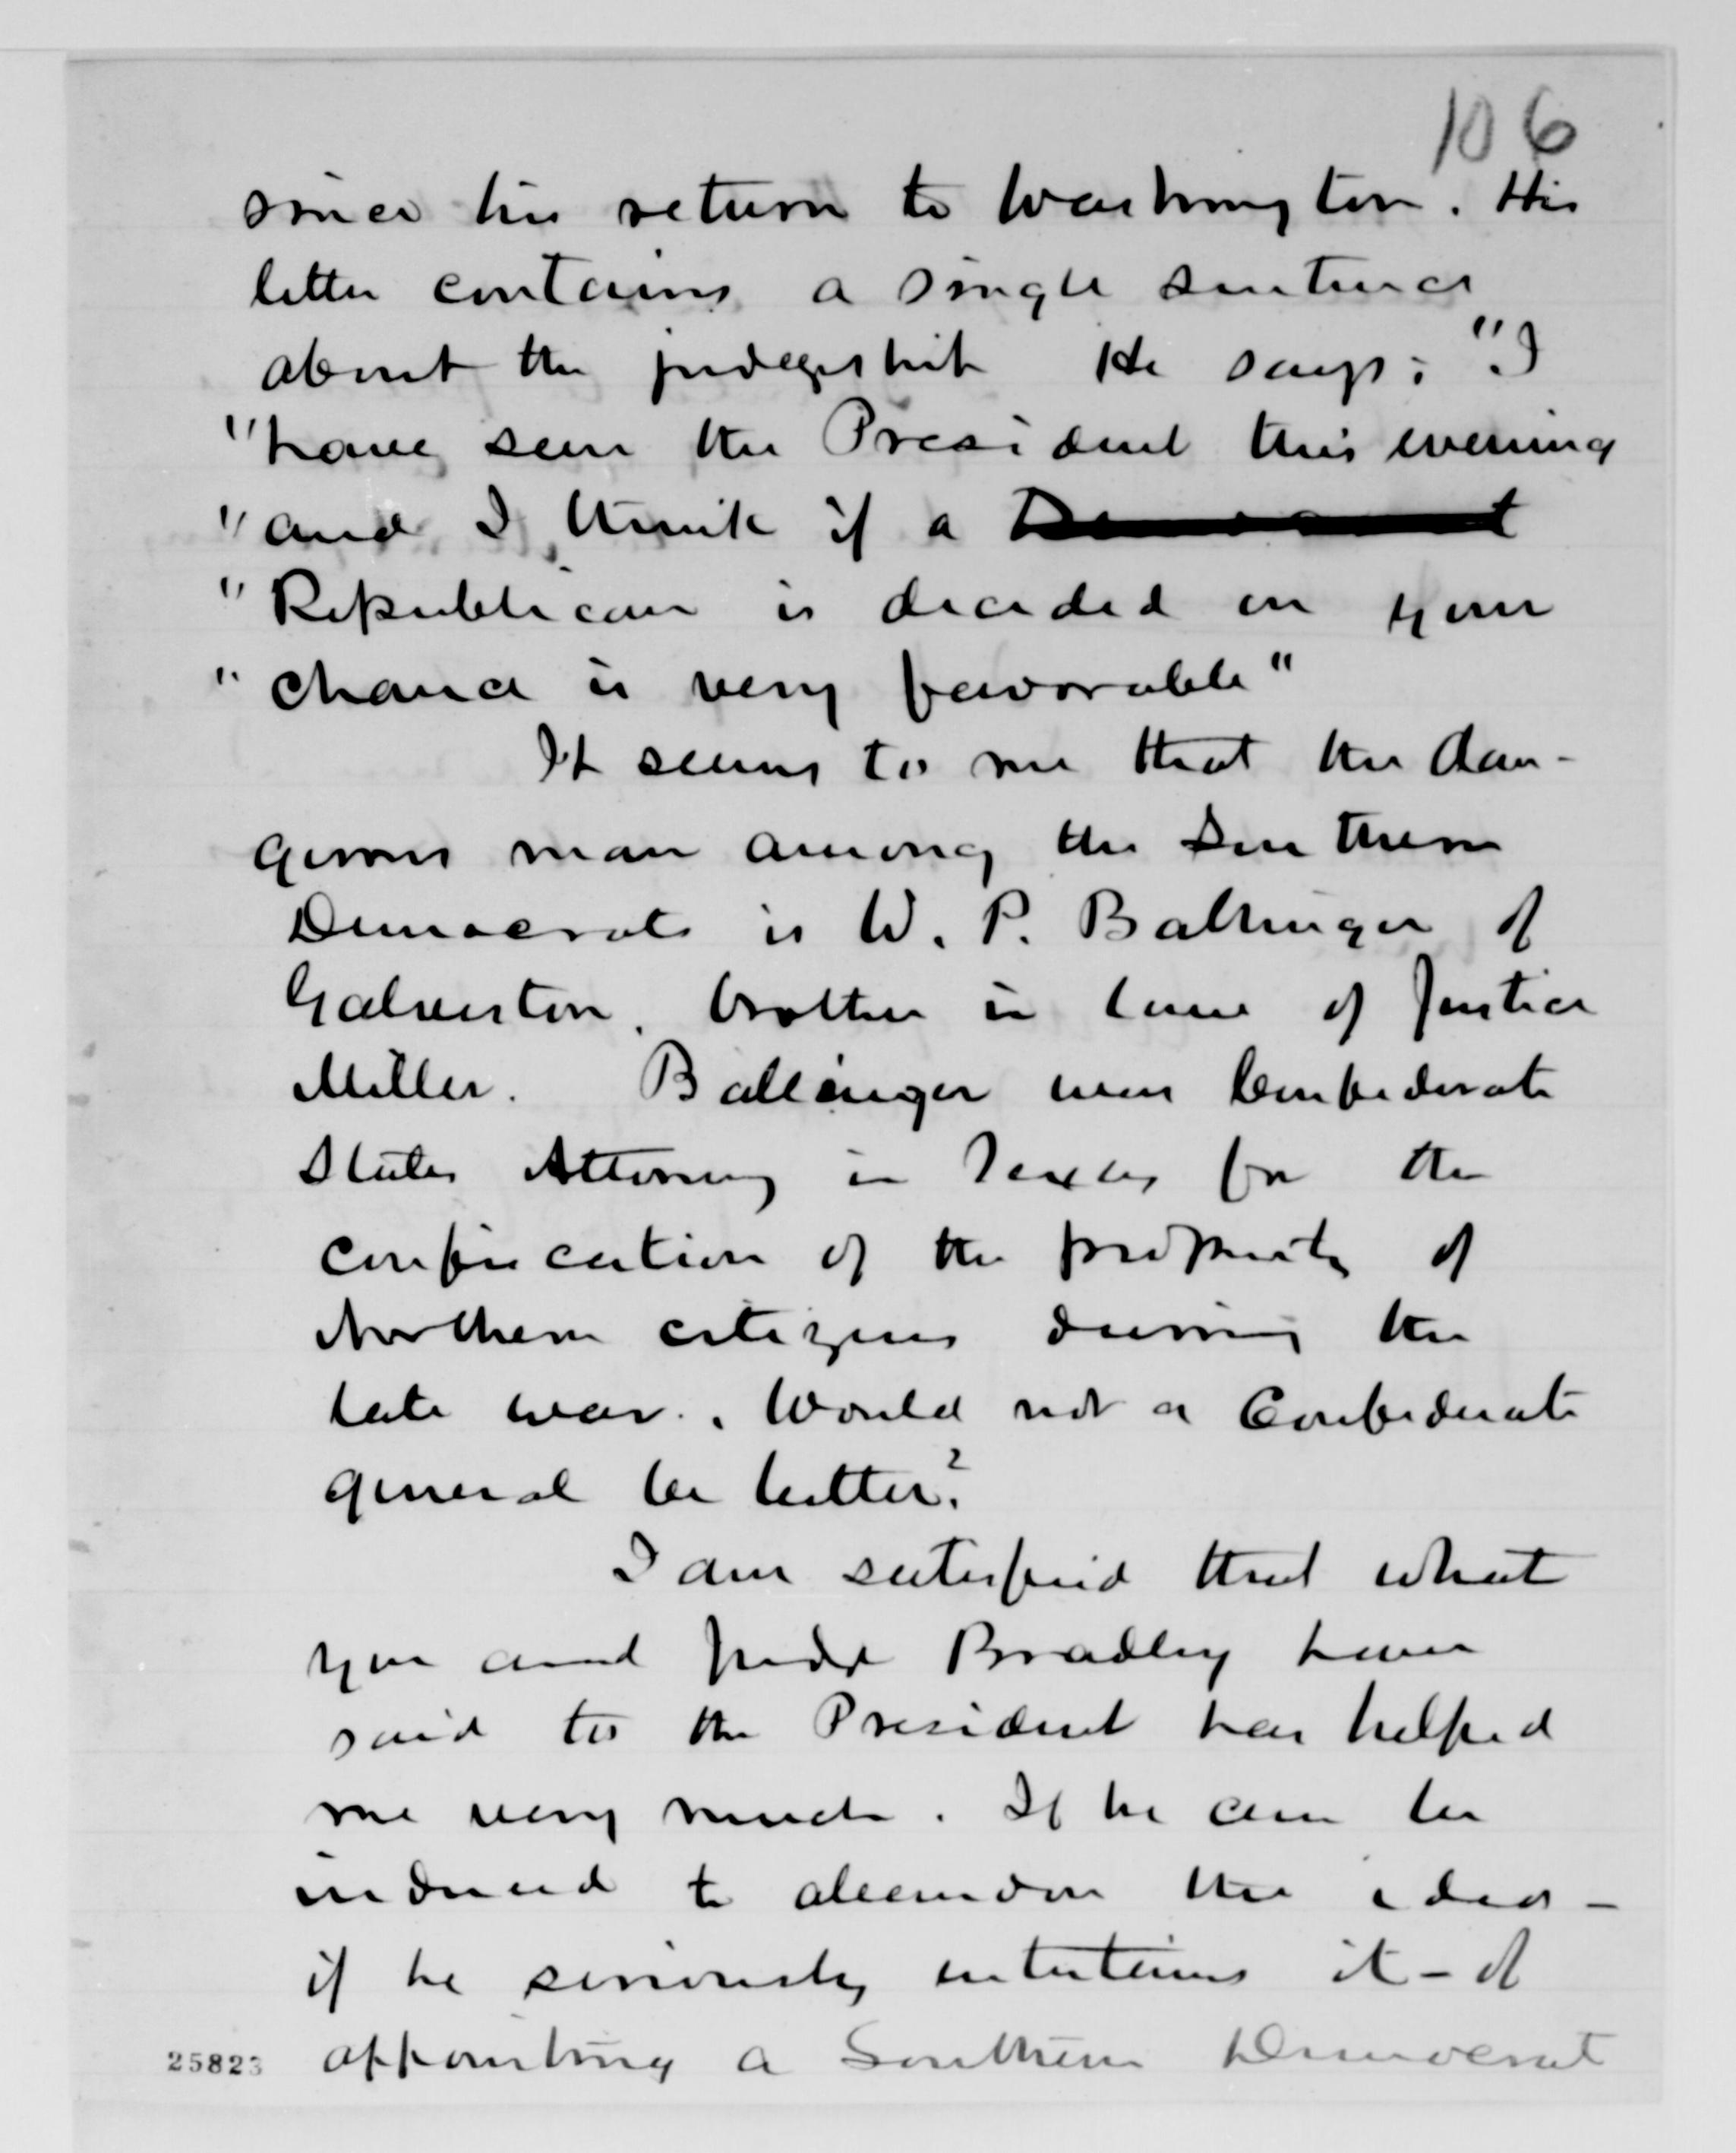 106
since his return to Washington. His
letter contains a single sentence
about the judgeship He says: "I
"have seen the President this evening
"and I think if a Democrat
"Republican is decided on your
"chance is very favorable"
It seems to me that the dan-
gerous man among the Southern
Democrats is W. P. Ballinger of
Galveston, brother in law of Justice
Miller. Ballinger was Confederate
States Attorney in Texas for the
confiscation of the property of
Northern citizens during the
late war. Would not a Confederate
general be better?
I am satisfied that what
you and Judge Bradley have
said to the President has helped
me very much. If he can be
induced to abandon the idea -
if he seriously entertains it - of
25823 appointing a Southern Democrat